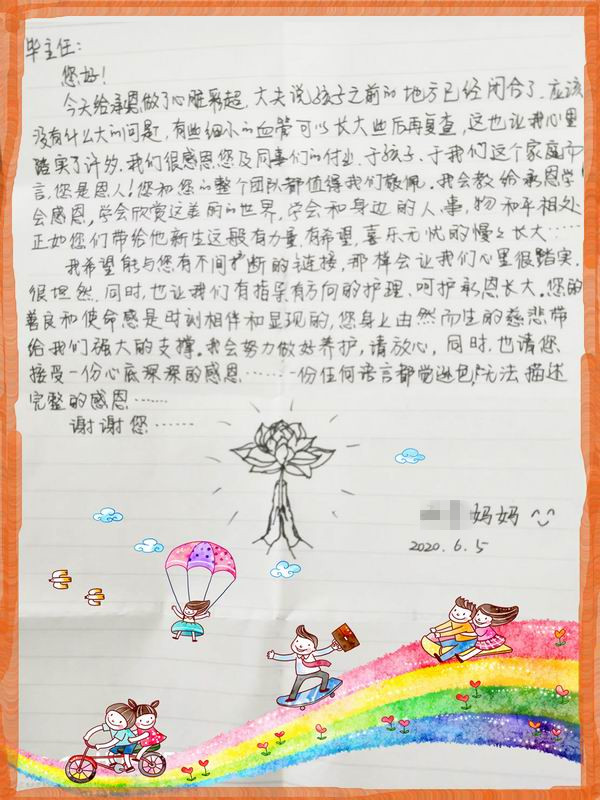 毕主任：
您好！
今天给承恩做了心脏彩超，大夫说孩子之前的地方已经闭合了，应该
没有什么大的问题，有些细小的血管可以长大些后再复查，这也让我心里
踏实了许多。我们很感恩您及同事们的付出，于孩子，于我们这个家庭而
言，您是恩人！您和您的整个团队都值得我们敬佩。我会教给承恩学
会感恩，学会欣赏这美丽的世界，学会和身边的人、事、物和平相处
正如您们带给他新生这般有力量，有希望，喜乐无忧的慢慢长大……
我希望能与您有不间断的链接，那样会让我们心里很踏实，
很坦然，同时，也让我们有指导有方向的护理、呵护承恩长大。您的
善良和使命感是时刻相伴和显现的，您身上由然而生的慈悲带
给我们强大的支撑。我会努力做好养护，请放心，同时，也请您
接受一份心底深深的感恩……一份任何语言都觉逊色，无法描述
完整的感恩……
谢谢您……
妈妈
2020.6.5